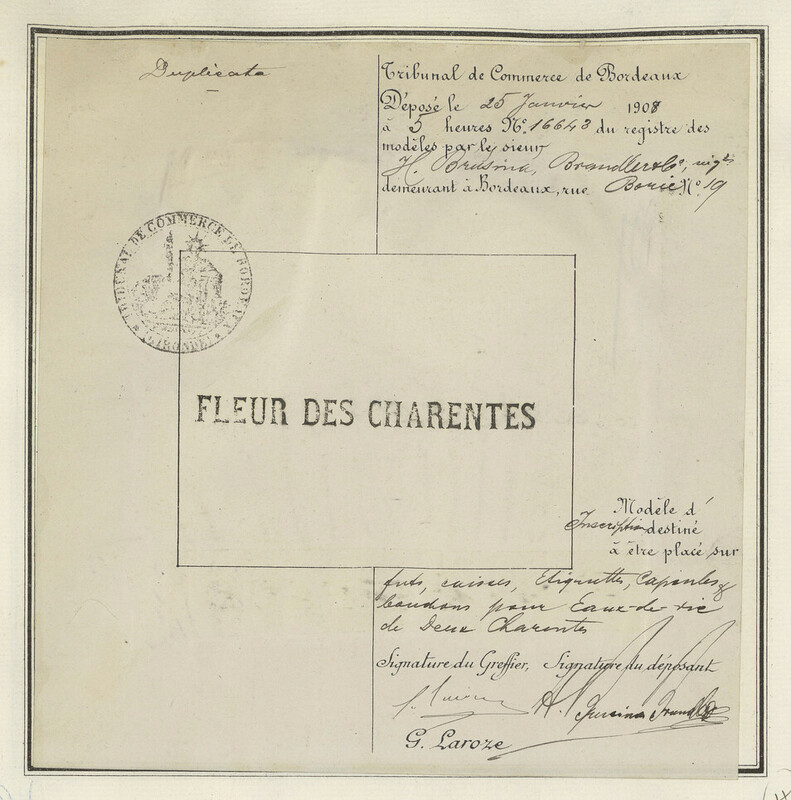 Duplicata
Tribunal de Commerce de Bordeaux
Déposé le 25 Janvier 1908
à 5 heures N° 16643 du registre des
modèles par le sieur
H. Brusina, Brandler & Cº, négts
demeurant à Bordeaux, rue Borie N° 19
TRIBUNAL DE COMMERCE DE BORDEAUX
(GIRONDE)
FLEUR DES CHARENTES
Modèle d'
Inscription destiné
à être placé sur
futs, caisses, Etiquettes, Capsules &
bouchons pour Eaux-de-vie
de Deux Charentes
Signature du Greffier, Signature du déposant
H. Brusina Brandler
G. Laroze